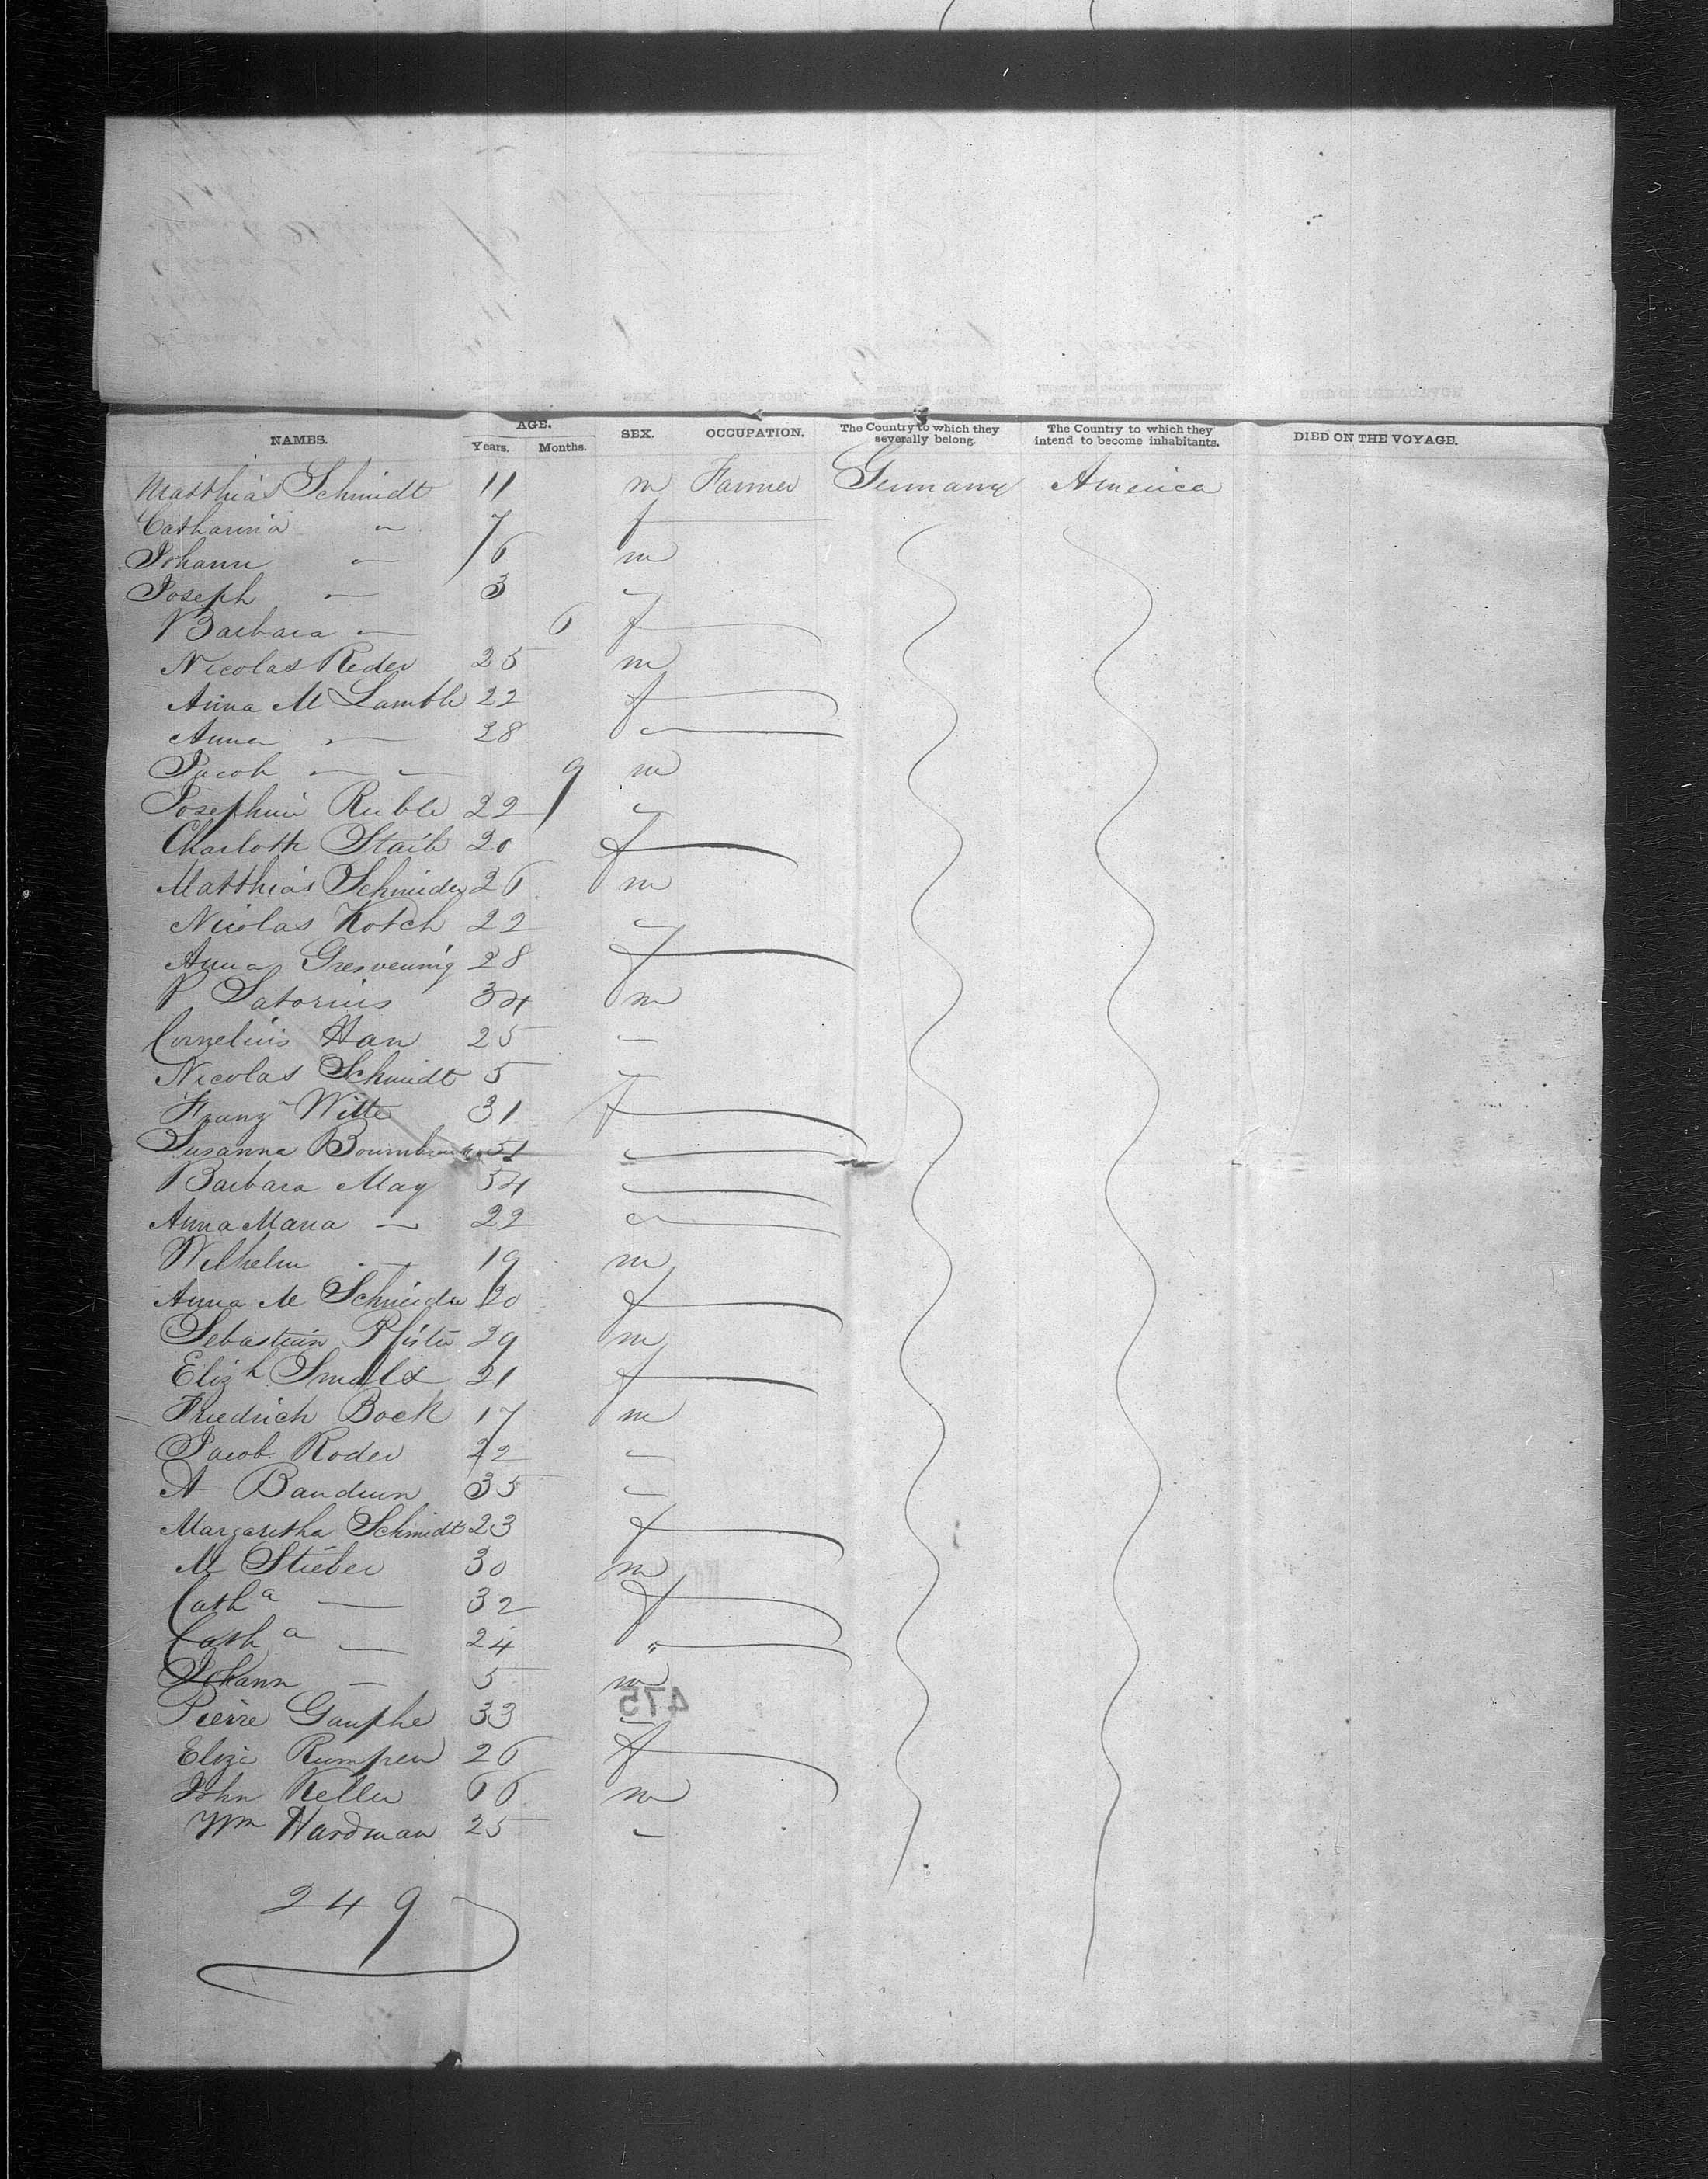 NAMES. AGE. Years. Months. SEX. OCCUPATION. The Country to which they severally belong. The Country to which they intend to become inhabitants. DIED ON THE VOYAGE.
Matthias Schmidt 11 m Farmer Germany America
Catharina " 7 f
Johann — 6 m
Joseph — 3 "
Barbara — 6 f
Nicolas Reder 25 m
Anna M Lamble 22 f
Anna " — 28 "
Jacob — — 9 m
Josephine Ruble 22 "
Charlotte Staib 20 f
Matthias Schneider 26 m
Nicolas Kotch 22 "
Anna 28 f
P Satorius 34 m
Cornelius Han 25 —
Nicolas Schmidt 5 "
Franz Witte 31 f
Susanna 51 "
Barbara May 54 "
Anna Maria — 22 "
Wilhelm — 19 m
Anna M Schneider 20 f
Sebastian Pfister 29 m
Eliz h 21 f
Friedrich Bock 17 m
Jacob Roder 22 "
A Baudrun 35 "
Margaretha Schmidt 23 f
M Stieber 30 m
Cath a — 32 f
Cath a — 24 "
Johann — 5 m
475
Pierre Gauphe 33 "
Elize Rumpen 26 f
John Keller 66 m
Wm Hardman 25 "
249